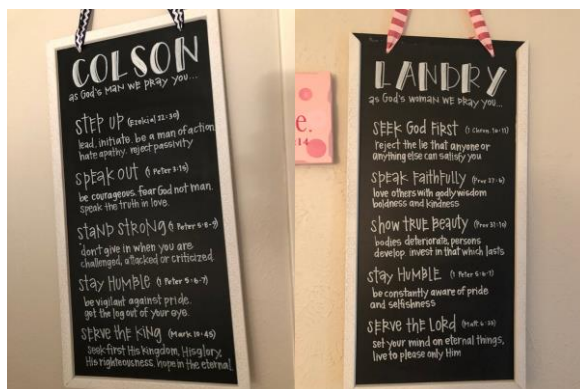 COLSON
as God's MAN WE PRAY YOU...
STEP UP (Ezekial 22:30)
lead, initiate, be a man of action
hate apathy. reject passivity
SPEAK OUT (1 Peter 3:15)
be courageous. fear God not man.
speak the truth in love.
STAND STRONG (1 Peter 5:8-9)
don't give in when you are
challenged, attacked or criticized
stay HUMBLE (1 Peter 5:6-7)
be vigilant against pride.
get the log out of your eye.
SERVE the KING (Mark 10:45)
seek first His kingdom, His glory,
His righteousness, hope in the eternal.
e.
:14
LANDRY
as God's woman WE PRAY YOU...
SEEK GOD FIRST (1 Chron. 16:11)
reject the lie that anyone or
anything else can satisfy you
SPEAK FAITHFULLY (Prov 27:6)
love others with godly wisdom
boldness and kindness
show TRUE BEAUTY (Prov 31:10)
bodies deteriorate, persons
develop. invest in that which lasts
stay HUMBLE (1 Peter 5:6-7)
be constantly aware of pride
and selfishness
SERVE the LORD (Matt 6:33)
set your mind on eternal things,
live to please only Him